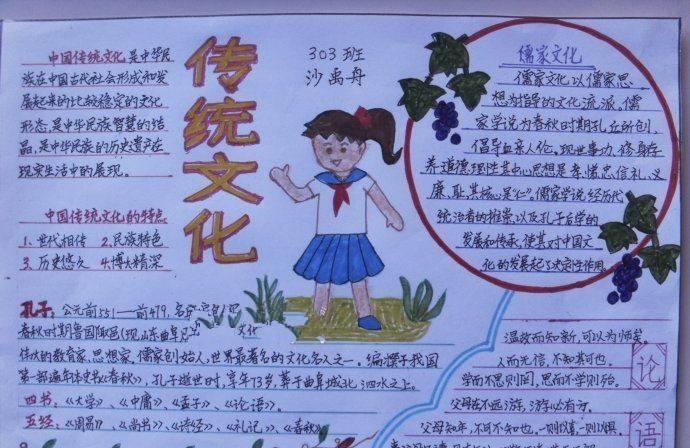 中国传统文化是中华民
族在中国古代社会形成和发
展起来的比较稳定的文化
形态,是中华民族智慧的结
晶,是中华民族的历史遗产在
现实生活中的展现。
中国传统文化的特点
1、世代相传 2、民族特色
3、历史悠久 4、博大精深
传统文化
303班
沙禹舟
儒家文化
儒家文化以儒家思
想为指导的文化流派。儒
家学说为春秋时期孔丘所创,
倡导血亲人伦、现世事功、修身存
养、道德理性其中心思想是孝、悌、忠、信、礼、义
廉、耻,其核心是“仁”。儒家学说经历代
统治者的推崇,以及孔子后学的
发展和传承,使其对中国文
化的发展起了决定性作用。
孔子:公元前551—前479,名
春秋时期鲁国陬邑(现山东曲阜
文化
伟大的教育家、思想家、儒家创始人,世界最著名的文化名人之一。编撰了我国
第一部编年体史书《春秋》,孔子逝世时,享年73岁,葬于曲阜城北泗水之上。
四书:《大学》、《中庸》、《孟子》、《论语》。
五经:《周易》、《尚书》、《诗经》、《礼记》、《春秋》
论语
温故而知新,可以为师矣。
人而无信,不知其可也。
学而不思则罔,思而不学则殆。
父母在不远游,游必有方。
父母知年,不可不知也,一则以喜,一则以惧。